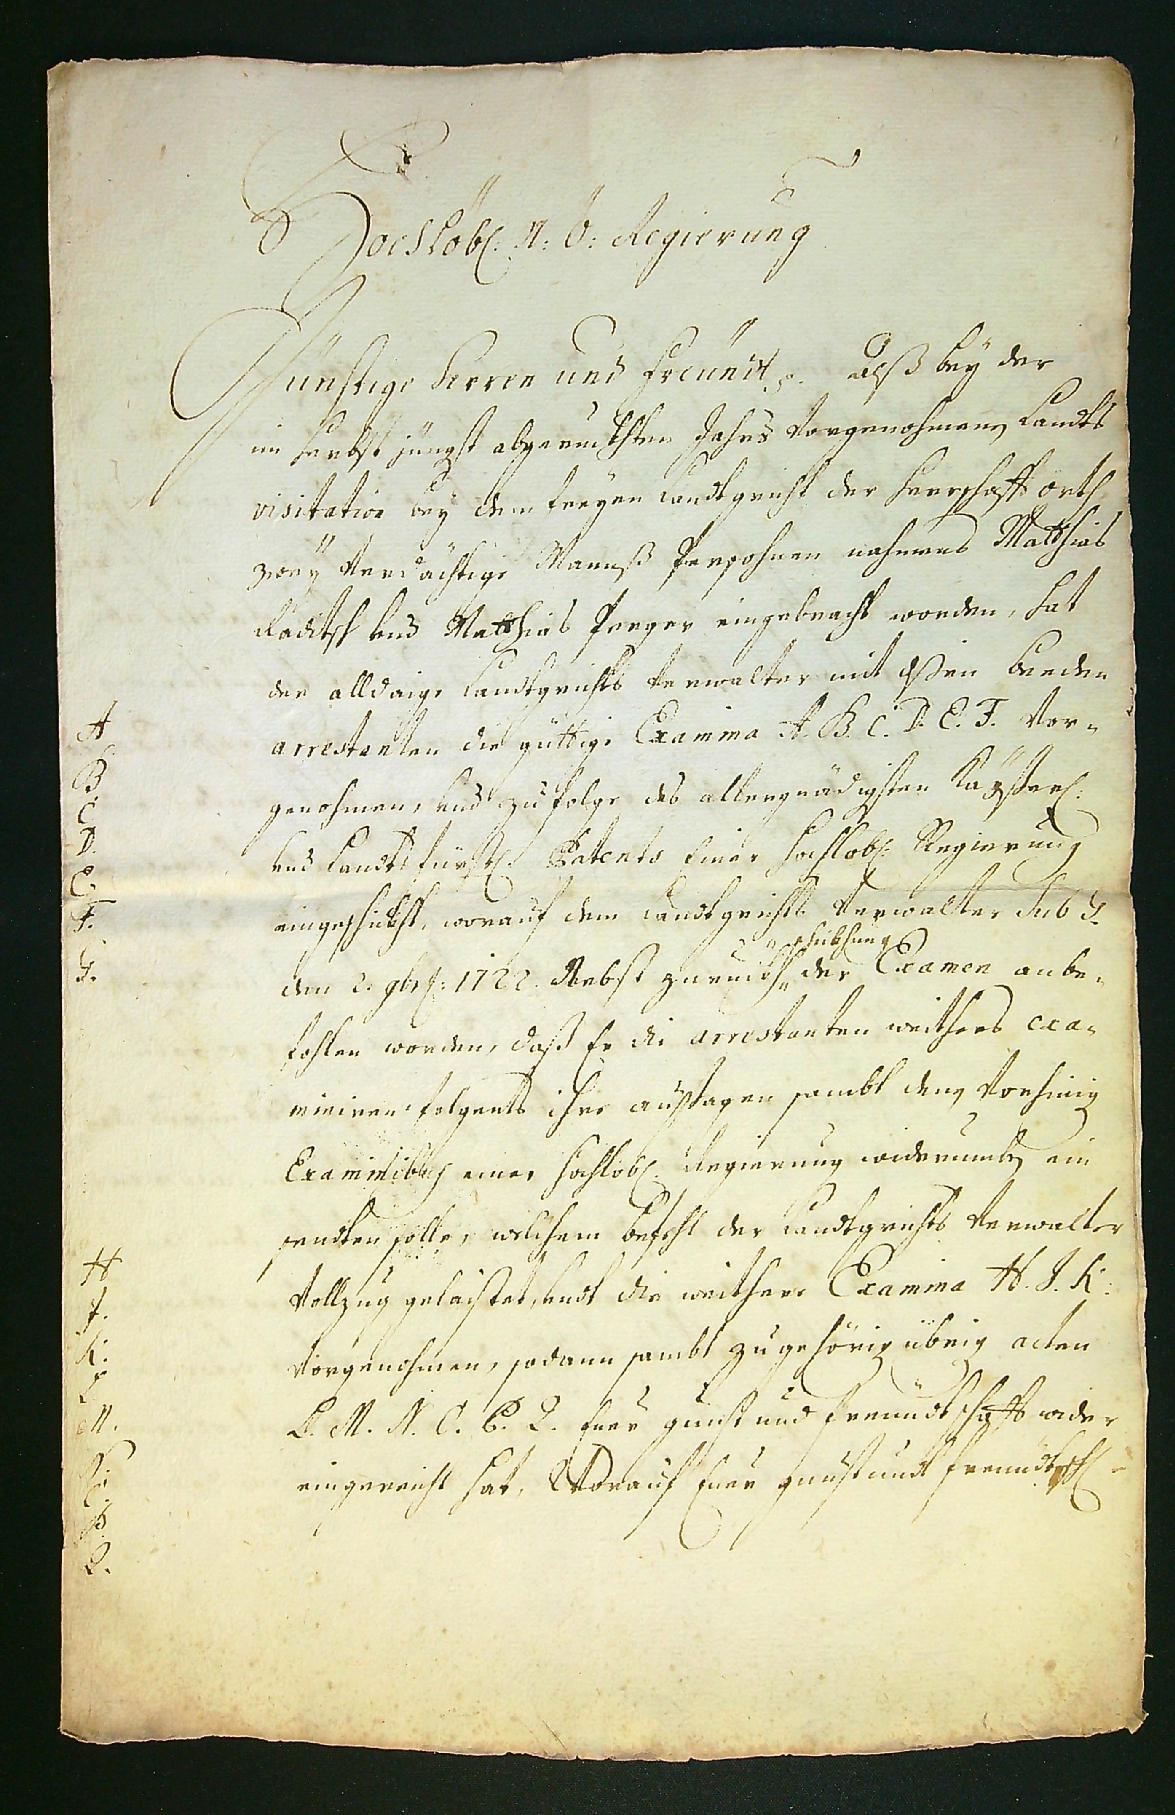 Hochlöbl: N: Ö: Regierung
Günstige Herren und Freündt. alß bey der
im Herbst jüngst abgeruckhten Jahrs vorgenohmenen Landts
visitation bey dem freyen Landtgricht der Herrschafft Orth
zwey verdächtige Mannß Persohnen nahmens Matthias
Raditsch und Matthias Preger eingebracht worden, hat
der alldaige Landtgrichts Verwalter mit disen beeden
A
arrestanten die güttige Examina A. B. C. D. E. F. vor¬
B.
genohmen, und zu folge des allergnädigsten Kayserl:
C.
D.
und Landtsfürstl: Patents Einer Hochlöbl: Regierung
E.
F.
eingeschickht, worauf dem Landtgrichts Verwalter sub G.
G.
den 2. 9br: 1722. Nebst zuruckh schickhung der Examen anbe¬
fohlen worden, daß Er die arrestanten weithers exa¬
miniren folgents ihre außsagen sambt denen vorhinig
Examinibus einer Hochlöbl: Regierung widerumb ein
sendten solle, welchem befehl der Landtgrichts Verwalter
H
Vollzug gelaistet, undt die weithere Examina H. J. K:
J.
K:
vorgenohmen, sodann sambt zugehörig übrig acten
L
M.
L. M. N. O. P. Q. Euer gunst und freundtschafft wider
N:
O:
eingereicht hat, Worauf Euer gunst undt freundtschl
P.
Q.